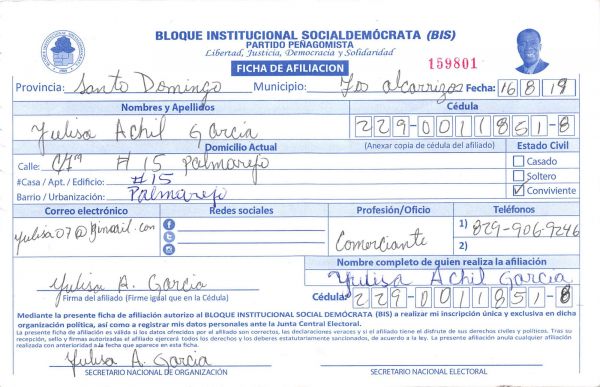 BLOQUE INSTITUCIONAL SOCIALDEMÓCRATA (BIS)
PARTIDO PEÑAGOMISTA
Libertad, Justicia, Democracia y Solidaridad
FICHA DE AFILIACION
159801
Provincia: Santo Domingo Municipio: Los alcarrizos Fecha: 16 8 19
Nombres y Apellidos Cédula
Yulisa Achil Garcia 229-0011851-8
Domicilio Actual (Anexar copia de cédula del afiliado) Estado Civil
Calle: # 15 Palmarejo Casado
#Casa / Apt. / Edificio: #15 Soltero
Barrio / Urbanización: Palmarejo Conviviente
Correo electrónico Redes sociales Profesión/Oficio Teléfonos
yulisa07@gmail.com Comerciante 1) 829-906-9246
2)
Nombre completo de quien realiza la afiliación
Yulisa A. Garcia Yulisa Achil Garcia
Firma del afiliado (Firme igual que en la Cédula) Cédula: 229-0011851-8
Mediante la presente ficha de afiliación autorizo al BLOQUE INSTITUCIONAL SOCIAL DEMÓCRATA (BIS) a realizar mi inscripción única y exclusiva en dicha
organización política, así como a registrar mis datos personales ante la Junta Central Electoral.
La presente ficha de afiliación es válida si los datos ofrecidos por el afiliado son correctos, las declaraciones veraces y si el afiliado tiene el disfrute de sus derechos civiles y políticos. Tras su
recepción, sello y firmas autorizadas el afiliado ejercerá todos los derechos y los deberes estatutariamente sancionados, de acuerdo a la ley. La presente afiliación anula cualquier afiliación
realizada con anterioridad a la fecha que aparece en esta ficha.
Yulisa A. Garcia
SECRETARIO NACIONAL DE ORGANIZACIÓN SECRETARIO NACIONAL ELECTORAL